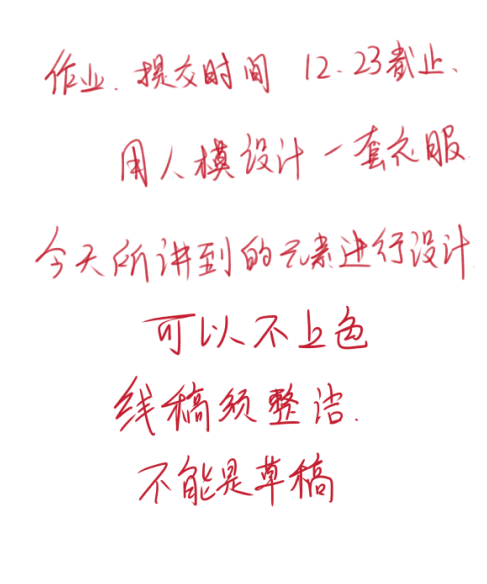 作业.提交时间 12.23截止、
用人模设计一套衣服
今天所讲到的元素进行设计
可以不上色
线稿须整洁.
不能是草稿